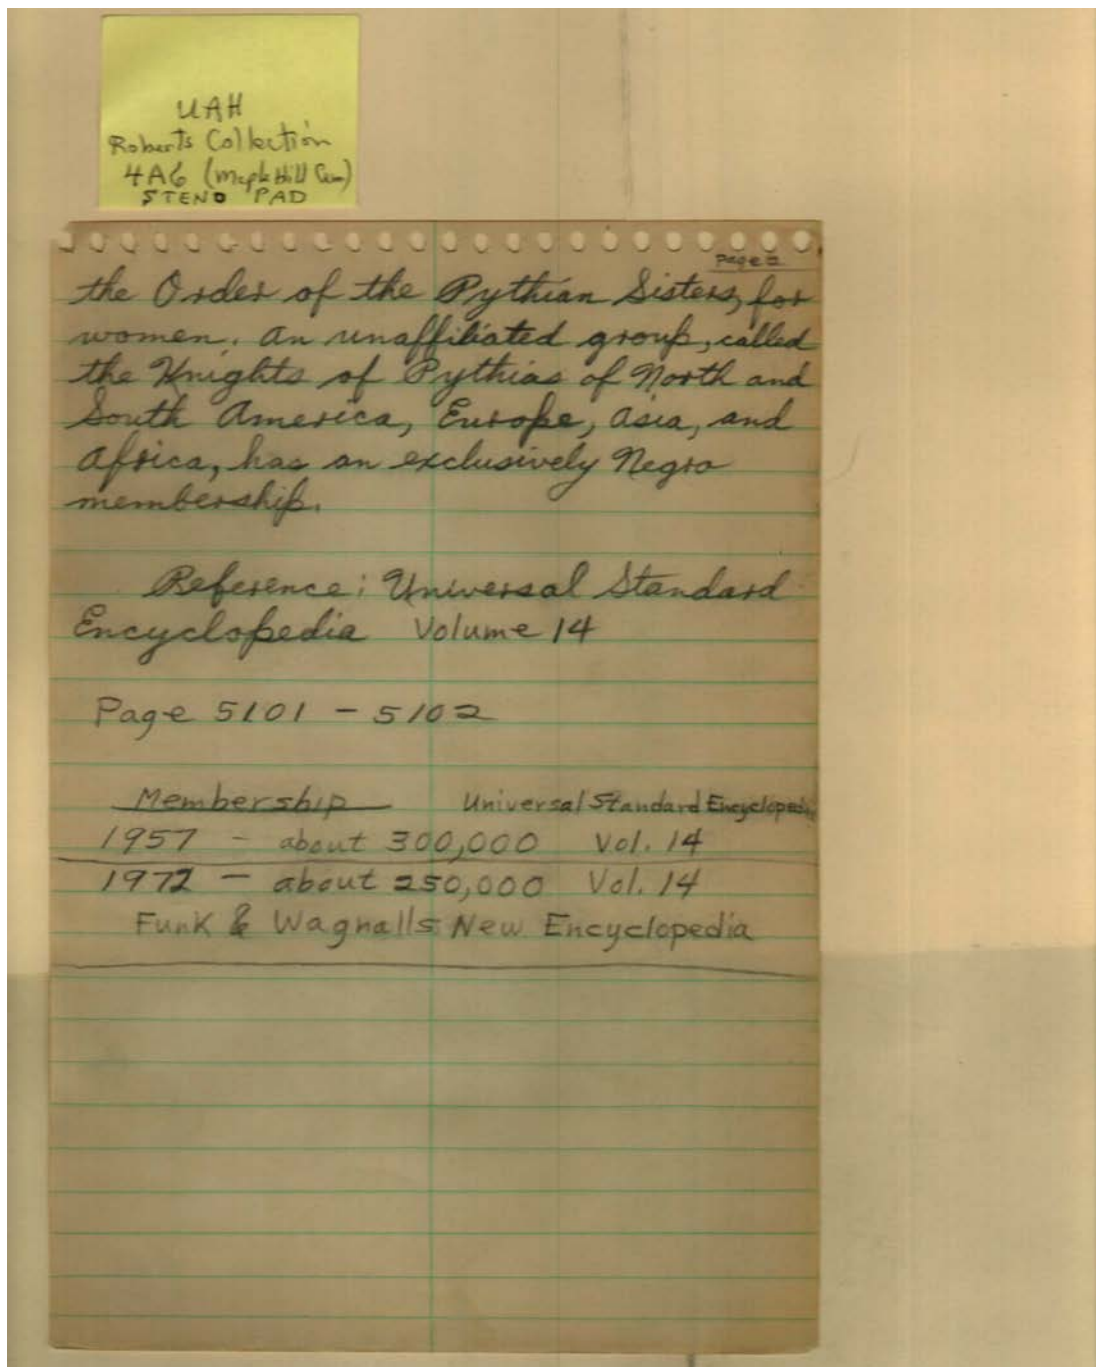 UAH
Roberts Collection
4A6 (Maple Hill Cem)
STENO PAD
Page 2
the Order of the Pythian Sisters, for
women. An unaffiliated group, called
the Knights of Pythias of North and
South America, Europe, Asia, and
Africa, has an exclusively Negro
membership.
Reference: Universal Standard
Encyclopedia Volume 14
Page 5101 - 5102
Membership Universal Standard Encyclopedia
1957 - about 300,000 Vol. 14
1972 - about 250,000 Vol. 14
Funk & Wagnalls New Encyclopedia